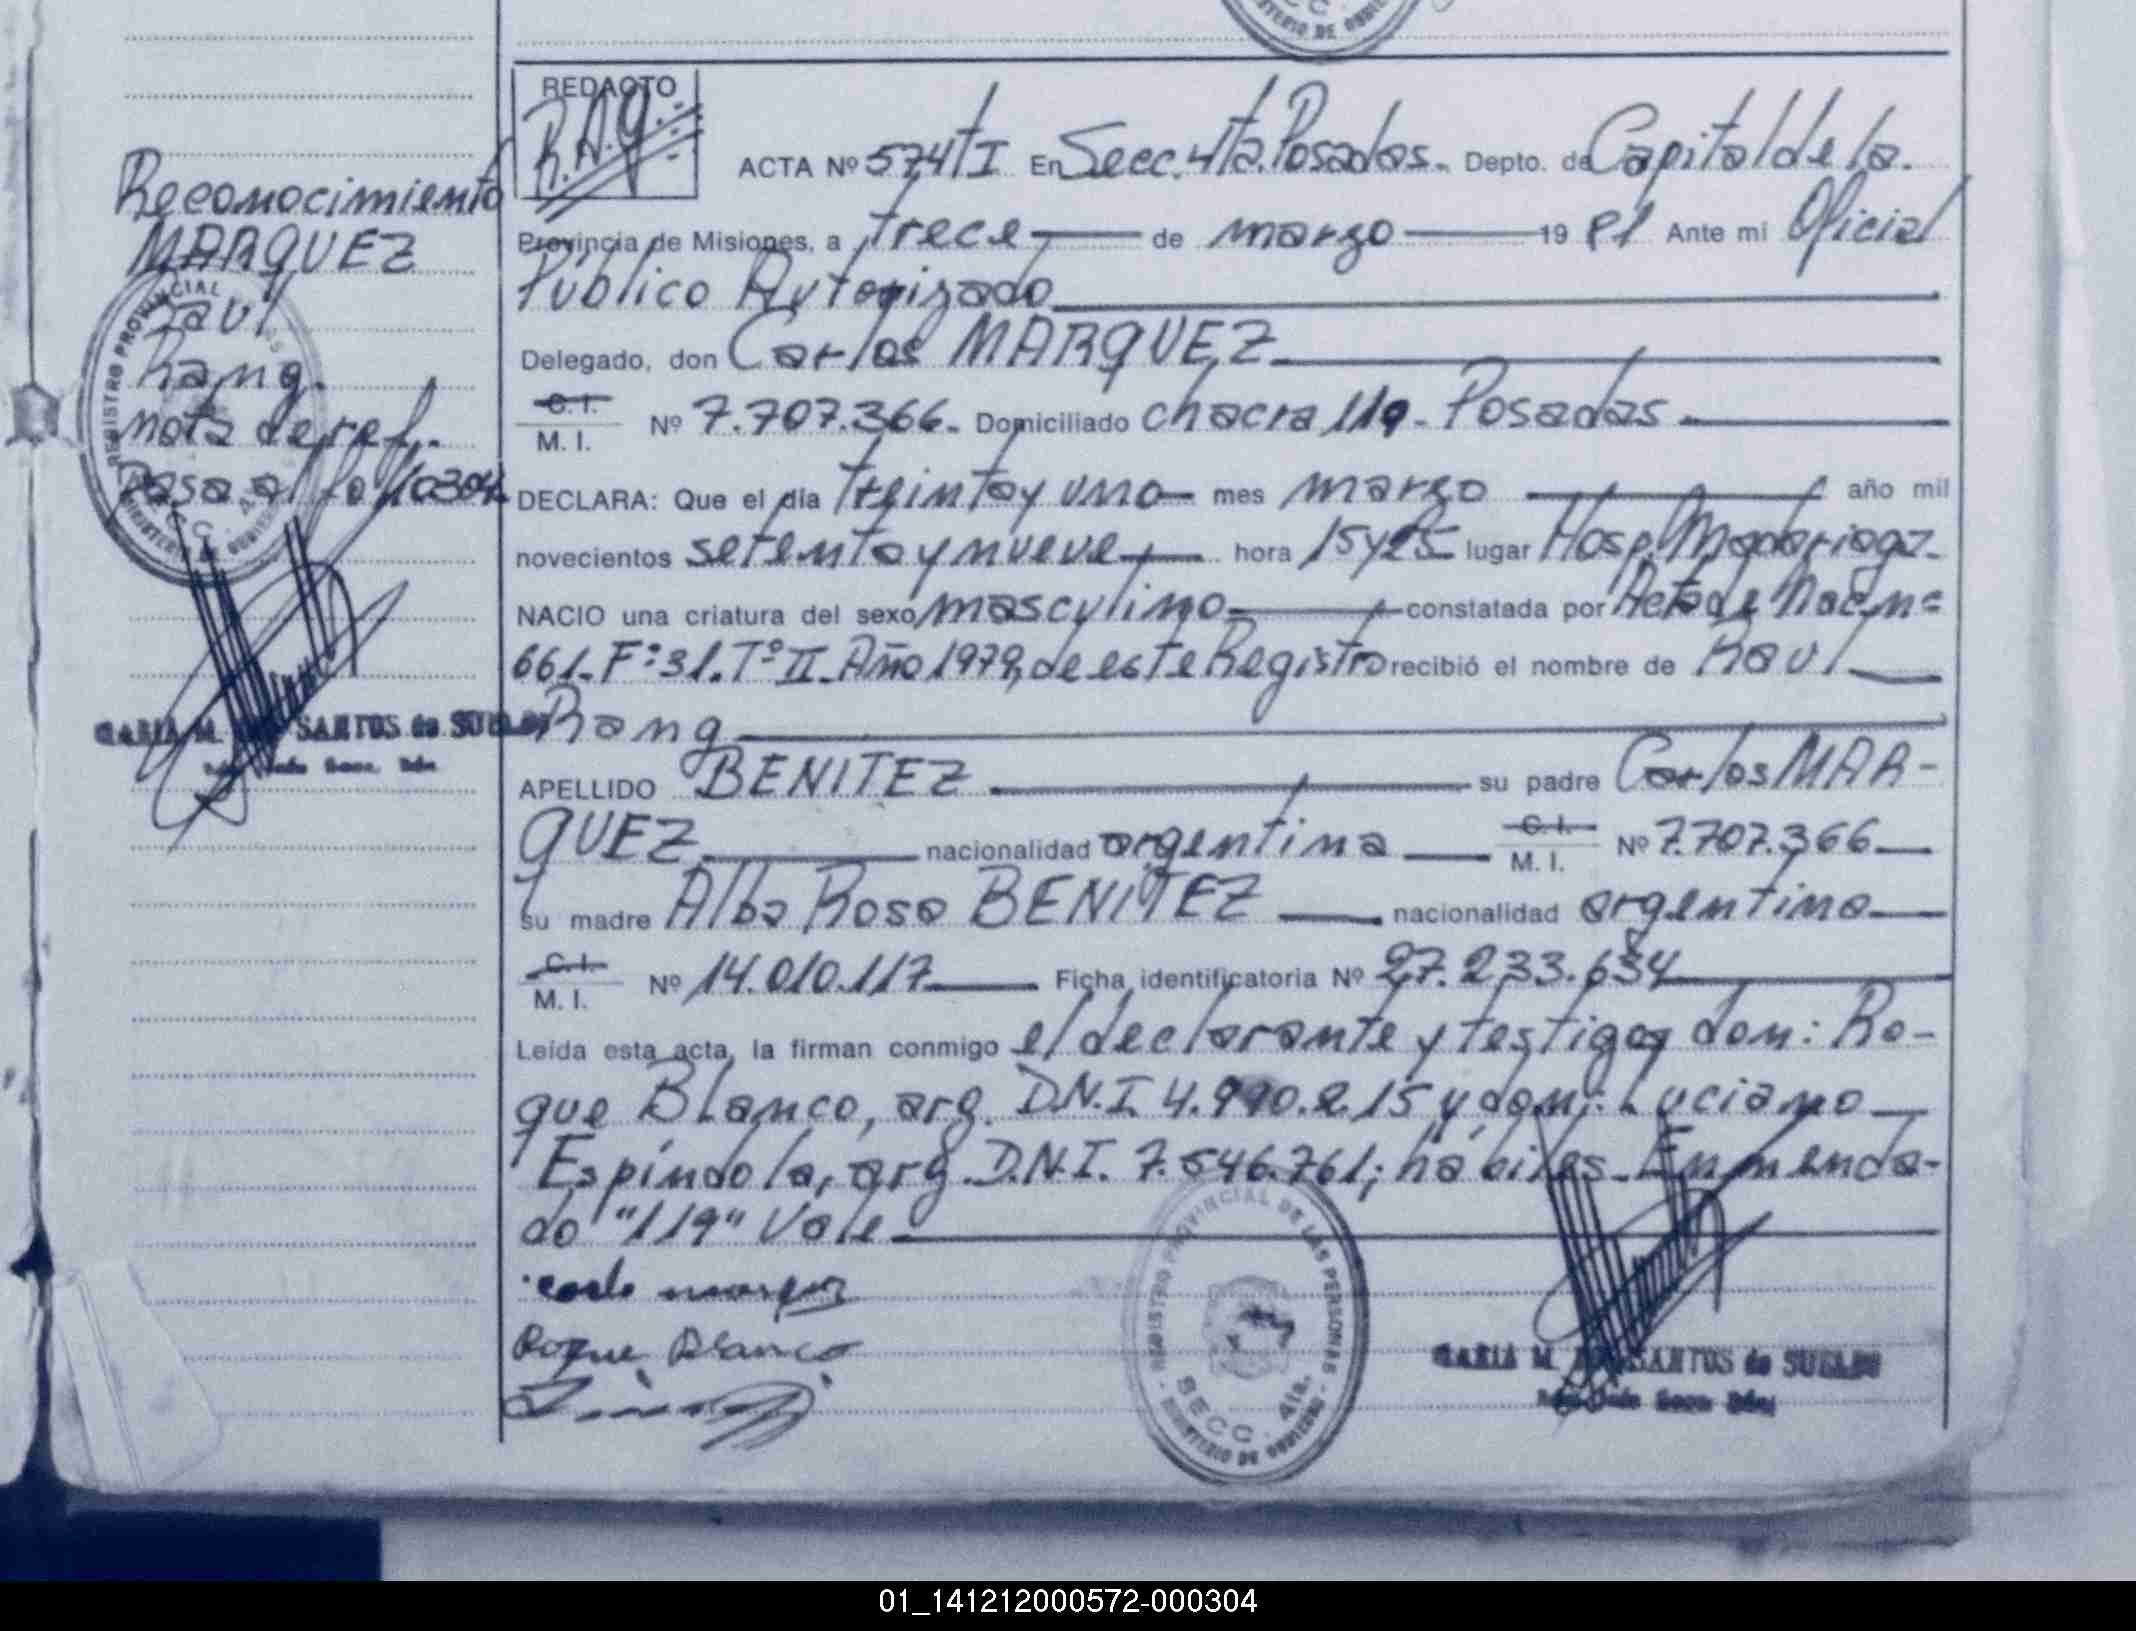 REDACTO
R.A.g.
ACTA Nº 574TI En Secc. 4ta. Posadas. Depto. de Capital de la.
Provincia de Misiones, a trece de marzo 19 81 Ante mi Oficial
Público Autorizado
Delegado, don Carlos MARQUEZ
C. I.
M. I. Nº 7.707.366. Domiciliado chacra 119 - Posadas
DECLARA: Que el día treinta y uno mes marzo año mil
novecientos setenta y nueve hora 15y25 lugar Hosp. Madariaga.
NACIO una criatura del sexo masculino constatada por Acta de Nac.nº
661. Fº 31. Tº II. Año 1979, de este Registro recibió el nombre de Raul
Ramg
APELLIDO BENITEZ su padre Carlos MAR-
QUEZ nacionalidad argentina C. I.
M. I. Nº 7.707.366
su madre Alba Rosa BENITEZ nacionalidad argentina
C. I.
M. I. Nº 14.010.117 Ficha identificatoria Nº 27.233.634
Leída esta acta, la firman conmigo el declarante y testigos don: Ro-
que Blanco, arg. D.N.I. 4.990.215 y don: Luciano
Espíndola, arg. D.N.I. 7.546.761; hábiles. Enmenda-
do "119" Vale
carlo marquez
Roque Blanco
REGISTRO PROVINCIAL DE LAS PERSONAS
SECC. 4ta.
MINISTERIO DE GOBIERNO
MARIA M. DOS SANTOS de SUELDO
Reconocimiento
MARQUEZ
Raul
Ramg.
nota de ref.
Pasa al fo 304
REGISTRO PROVINCIAL
MARIA M. DOS SANTOS de SUELDO
MINISTERIO DE GOBIERNO
01_141212000572-000304